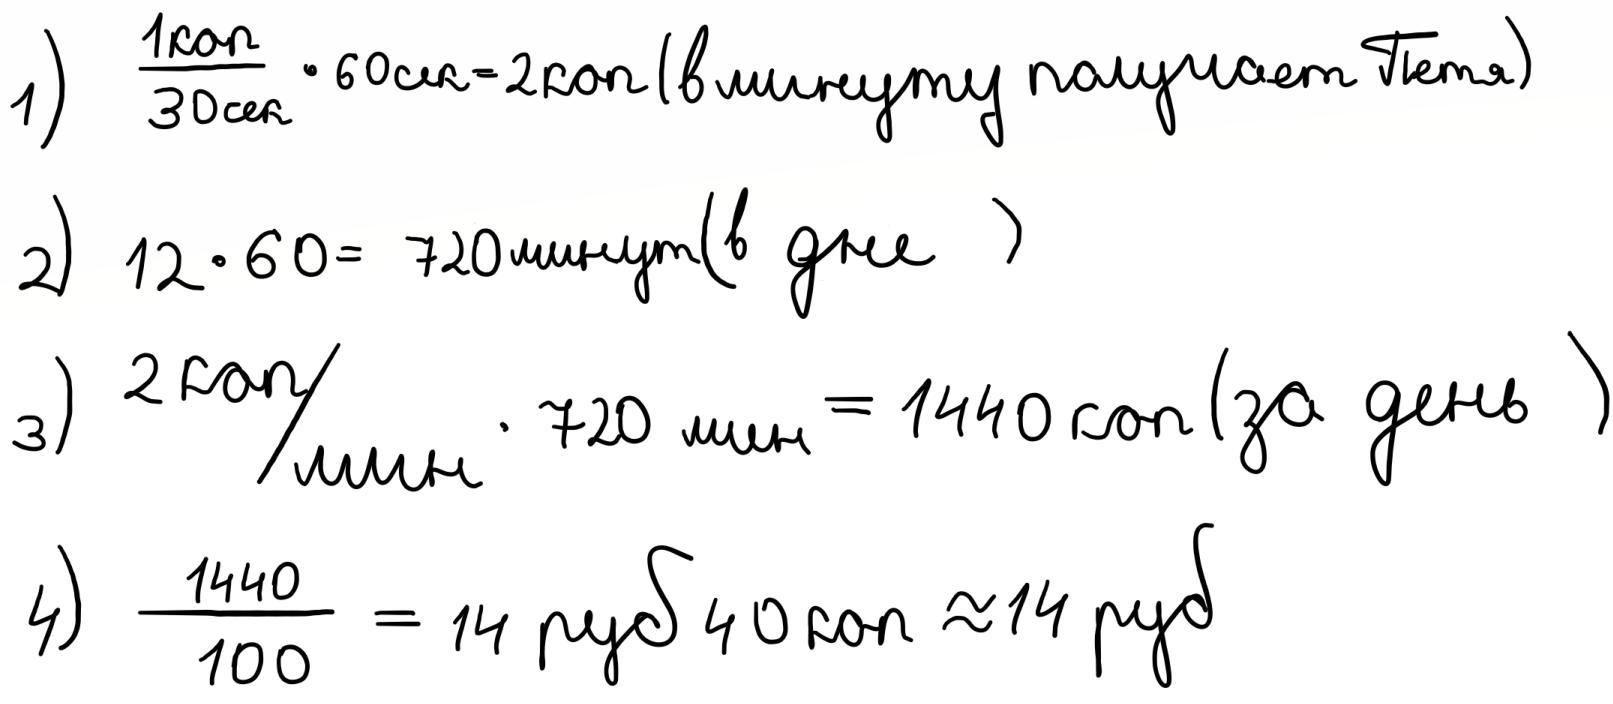 1) 1коп/30сек · 60сек = 2коп (в минуту получает Петя)
2) 12 · 60 = 720 минут (в дне )
3) 2 коп/мин · 720 мин = 1440 коп (за день )
4) 1440/100 = 14 руб 40 коп ≈ 14 руб